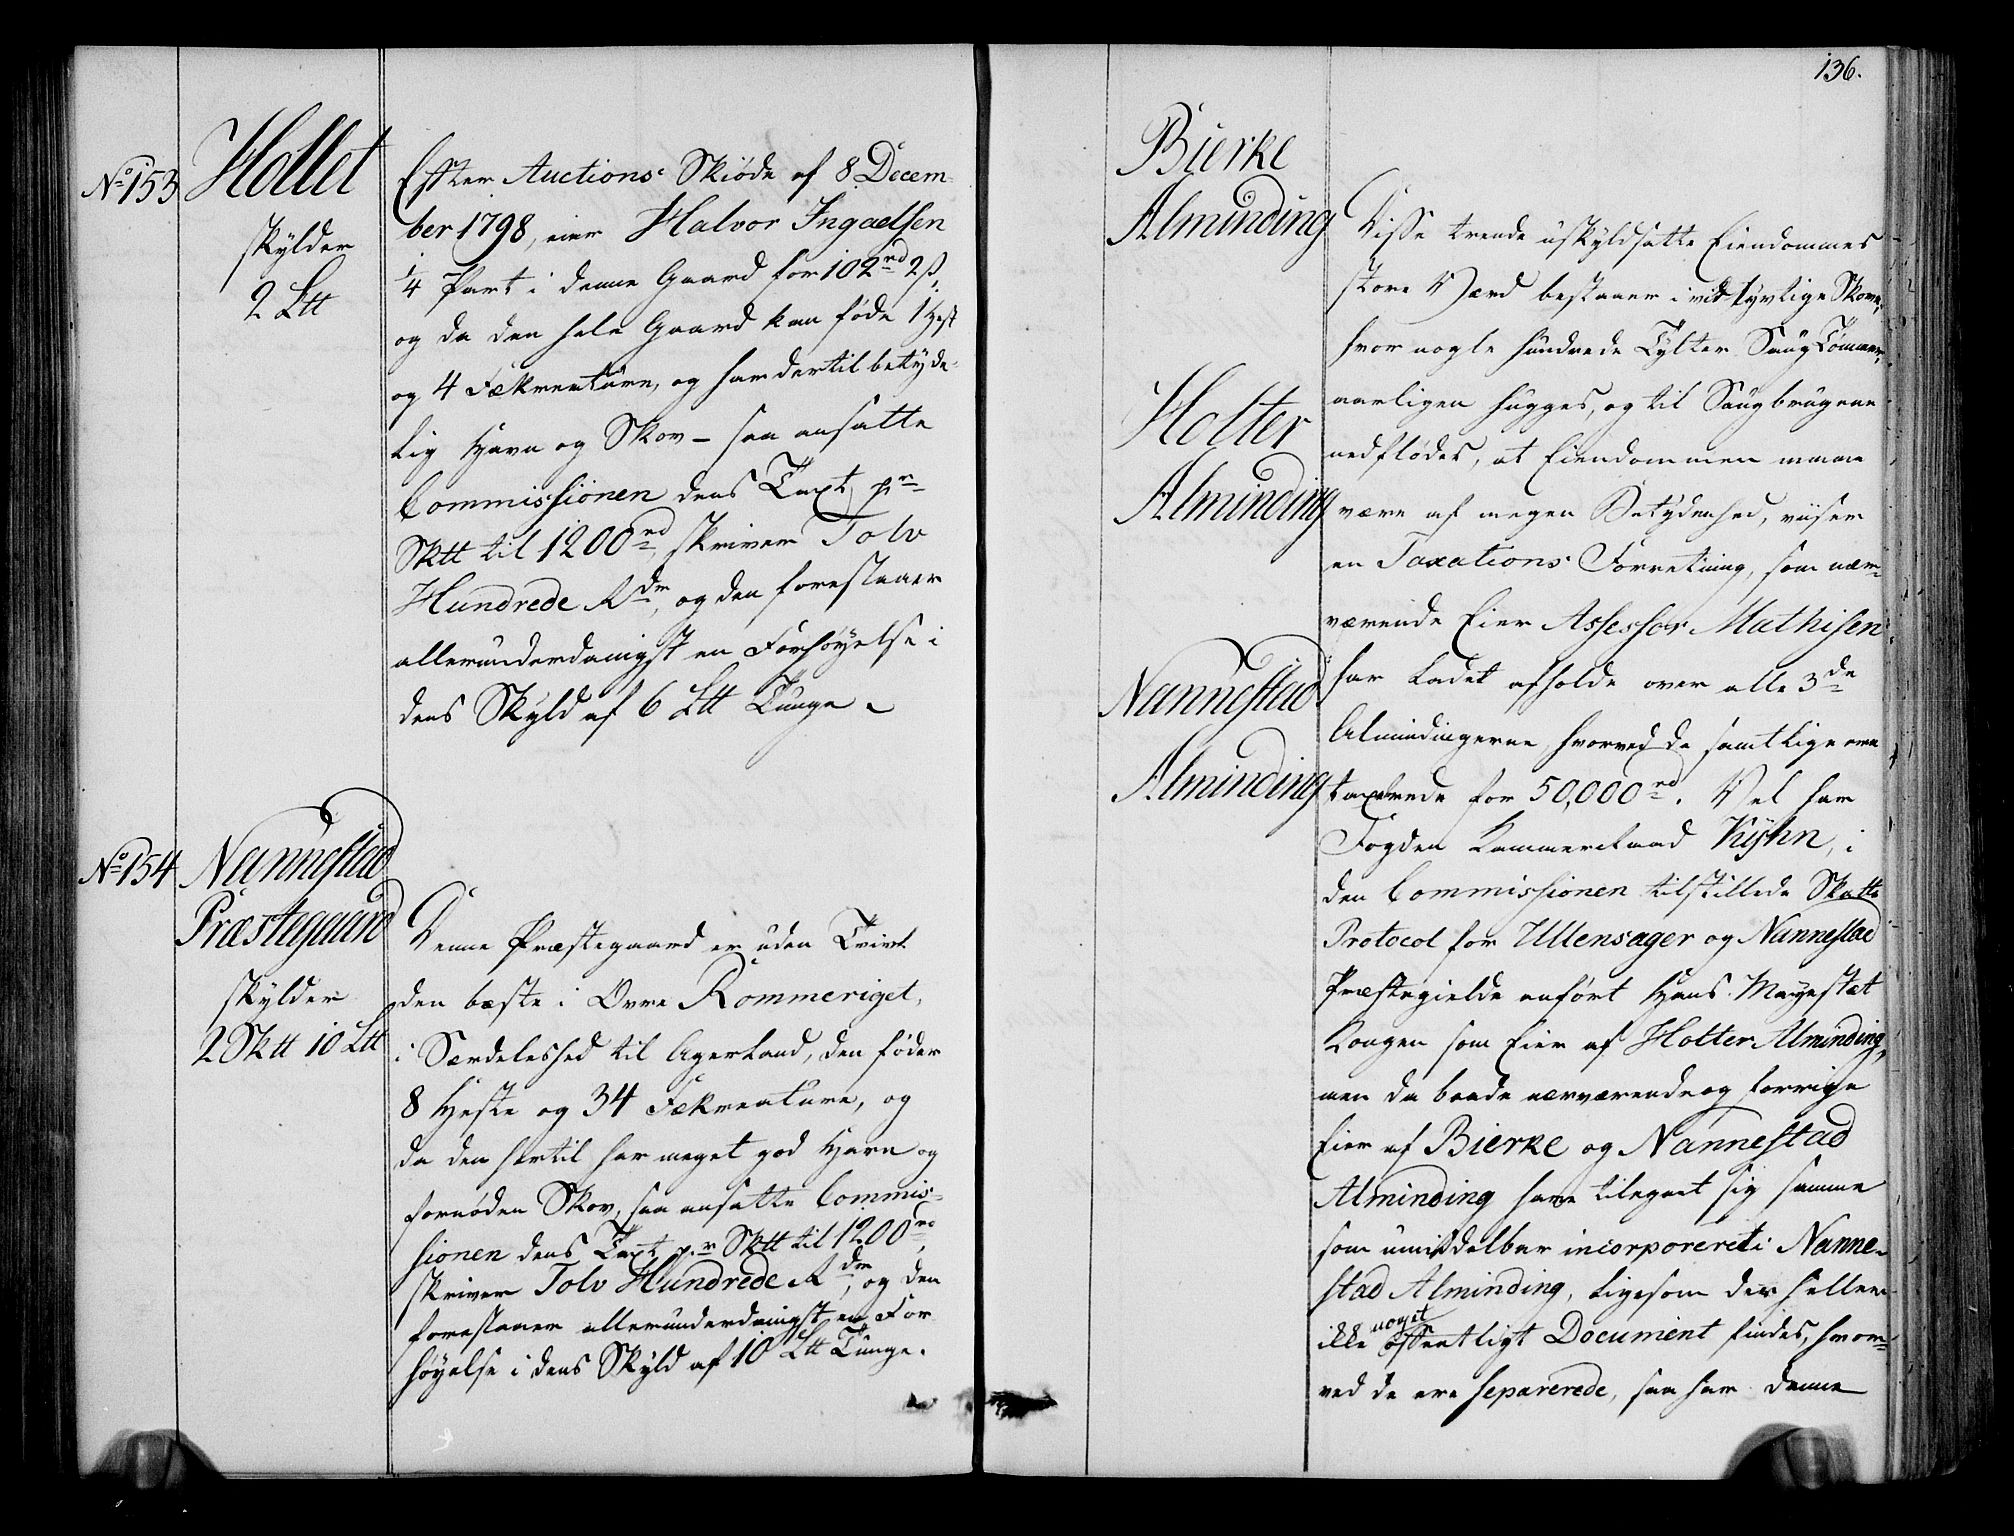 No 153
Hollet
skylder
2 Ltt
Efter Auctions Skiøde af 8 Decem-
ber 1798, eier Halvor Ingaelsen
1/4 Part i denne Gaard for 102 rd 2 ß,
og da den hele Gaard kan føde 1 Hest
og 4 Fækreature, og har dertil betyde-
lig Havn og Skov – saa ansatte
Commissionen dens Taxt pr
Sktt til 1200 rd skriver Tolv
Hundrede Rdr, og den forestaaer
allerunderdanigst en Forhøyelse i
dens Skyld af 6 Ltt Tunge –
No 154
Nannestad
Præstegaard
skylder
2 Sktt 10 Ltt
Denne Præstegaard er uden Tvivl
den bæste i Øvre Rommeriget,
i Særdeleshed til Agerland, den føder
8 Heste og 34 Fækreature, og
da den hertil har meget god Havn og
fornøden Skov, saa ansatte Commis-
sionen dens Taxt pr Sktt til 1200 rd,
skriver Tolv Hundrede Rdr, og den
forestaaer allerunderdanigst en For
høyelse i dens Skyld af 10 Ltt Tunge.
136.
Bierke
Alminding
Holter
Alminding
Nannestad
Alminding
Disse trende uskyldsatte Eiendommes
store Værd bestaaer i vidtløvlige Skove,
hvor nogle hundrede Tylter Saug Tømmer,
aarligen hugges, og til Saugbrugene
nedflødes, at Eiendommen maae
være af megen Betydenhed, viiser
en Taxations Forretning, som nær-
værende Eier Assessor Mathisen
har ladet afholde over alle 3de
Almindingerne, hvorved de samtlige ere
taxerede for 50,000 rd. Vel har
Fogden Kammerraad Kyhn, i
den Commissionen tilstillede Skatte
Protocol for Ullensager og Nannestad
Præstegielde anført Hans Mayestæt
Kongen som Eier af Holter Alminding,
men da baade nærværende og forrige
Eier af Bierke og Nannestad
Alminding have tilegnet sig samme
som umiddelbar incorporeret i Nanne-
stad Alminding, ligesom der heller
ikke noget offentligt Document findes, hvor-
ved de ere separerede, saa har denne